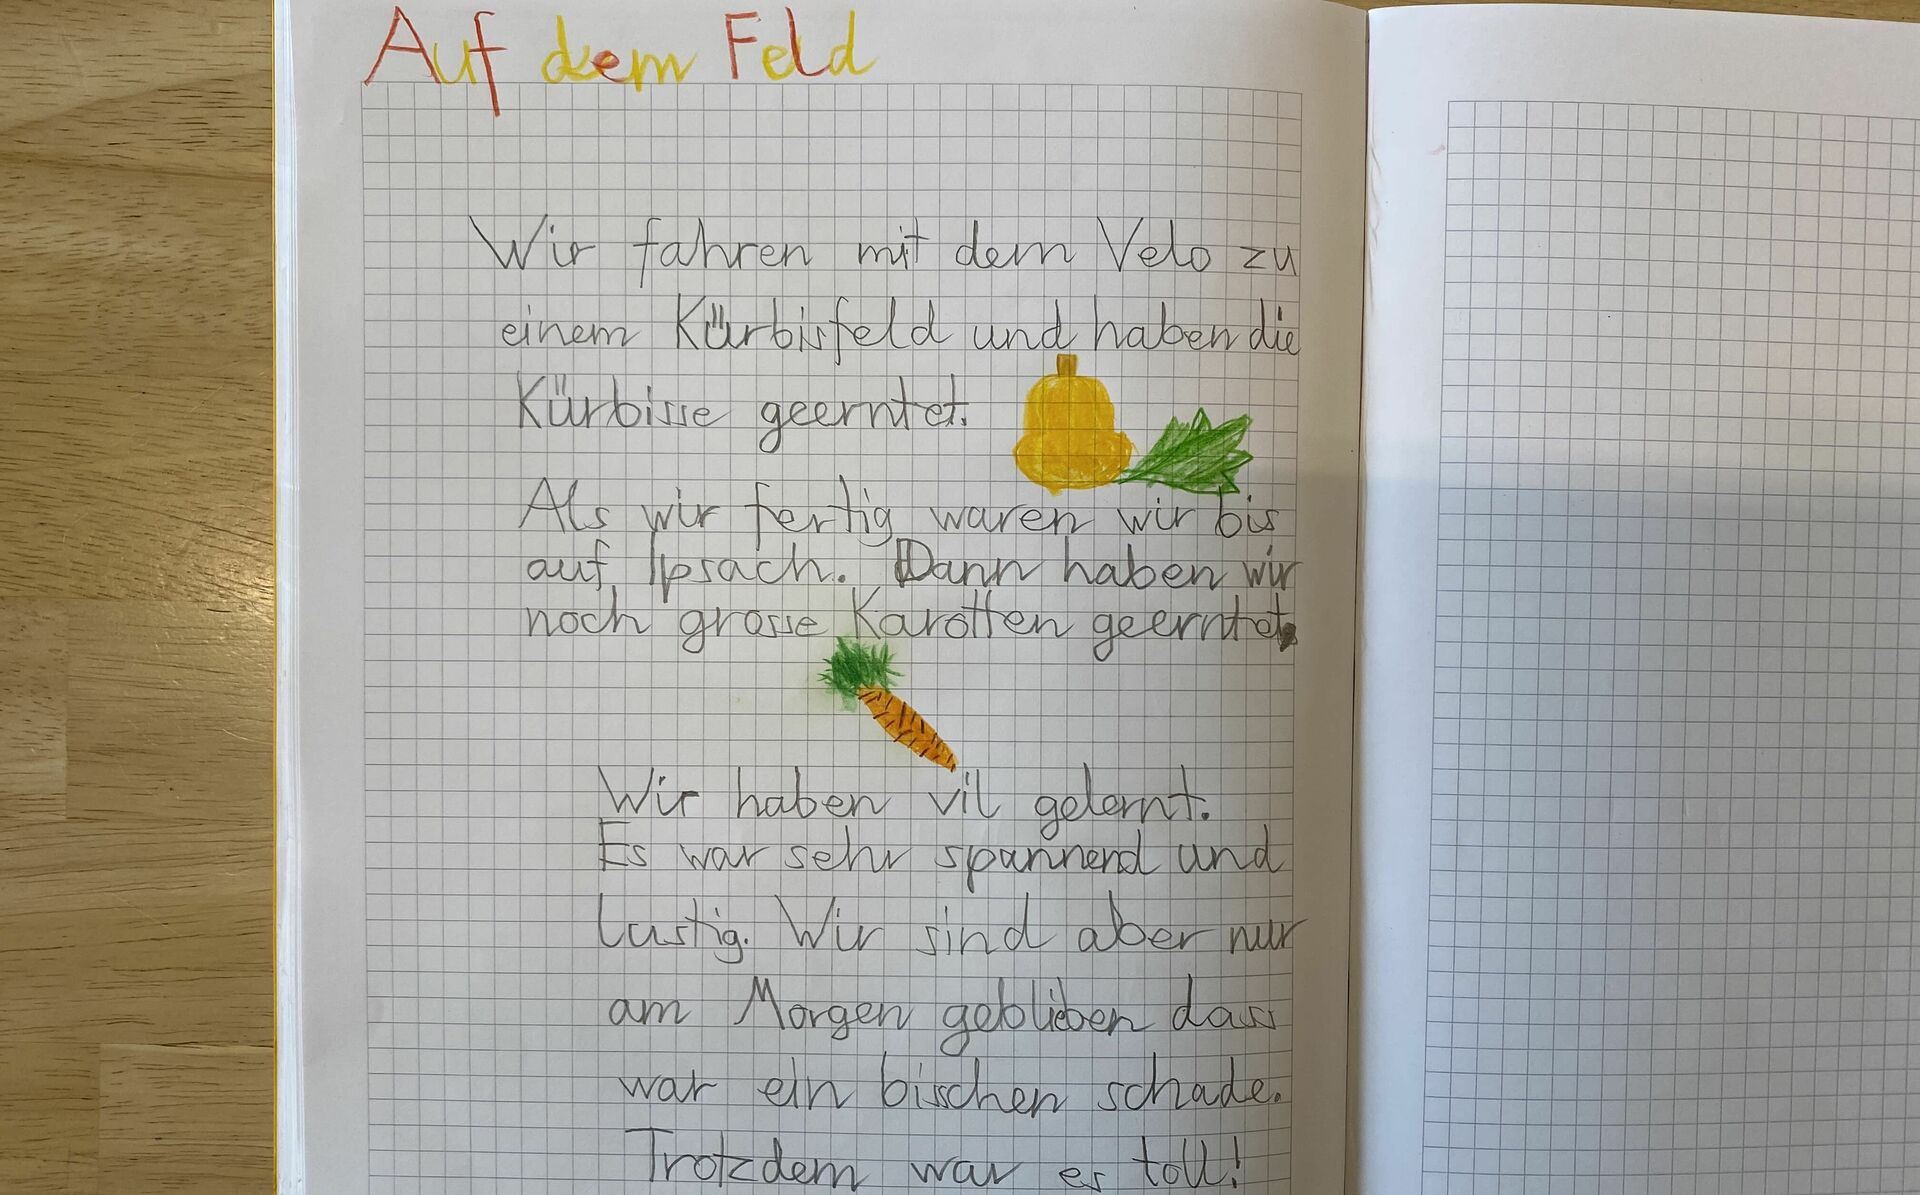 Auf dem Feld
Wir fahren mit dem Velo zu
einem Kürbisfeld und haben die
Kürbisse geerntet.
Als wir fertig waren wir bis
auf Ipsach. Dann haben wir
noch grosse Karotten geerntet.
Wir haben vil gelernt.
Es war sehr spannend und
lustig. Wir sind aber nur
am Morgen geblieben dass
war ein bisschen schade.
Trotzdem war es toll!